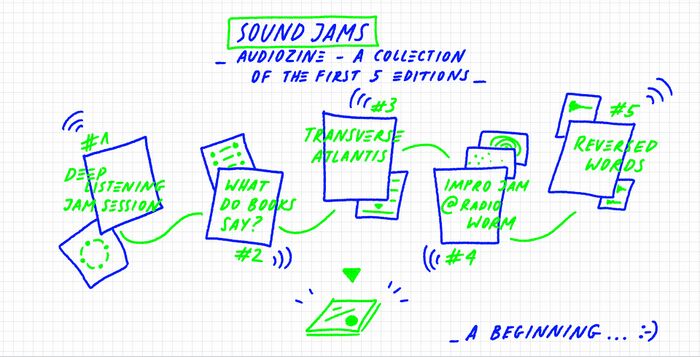 SOUND JAMS
_ AUDIOZINE - A COLLECTION
OF THE FIRST 5 EDITIONS _
#1
DEEP
LISTENING
JAM SESSION
WHAT
DO BOOKS
SAY?
#2
#3
TRANSVERSE
ATLANTIS
IMPRO JAM
@RADIO
WORM
#4
#5
REVERSED
WORDS
_ A BEGINNING... :-)